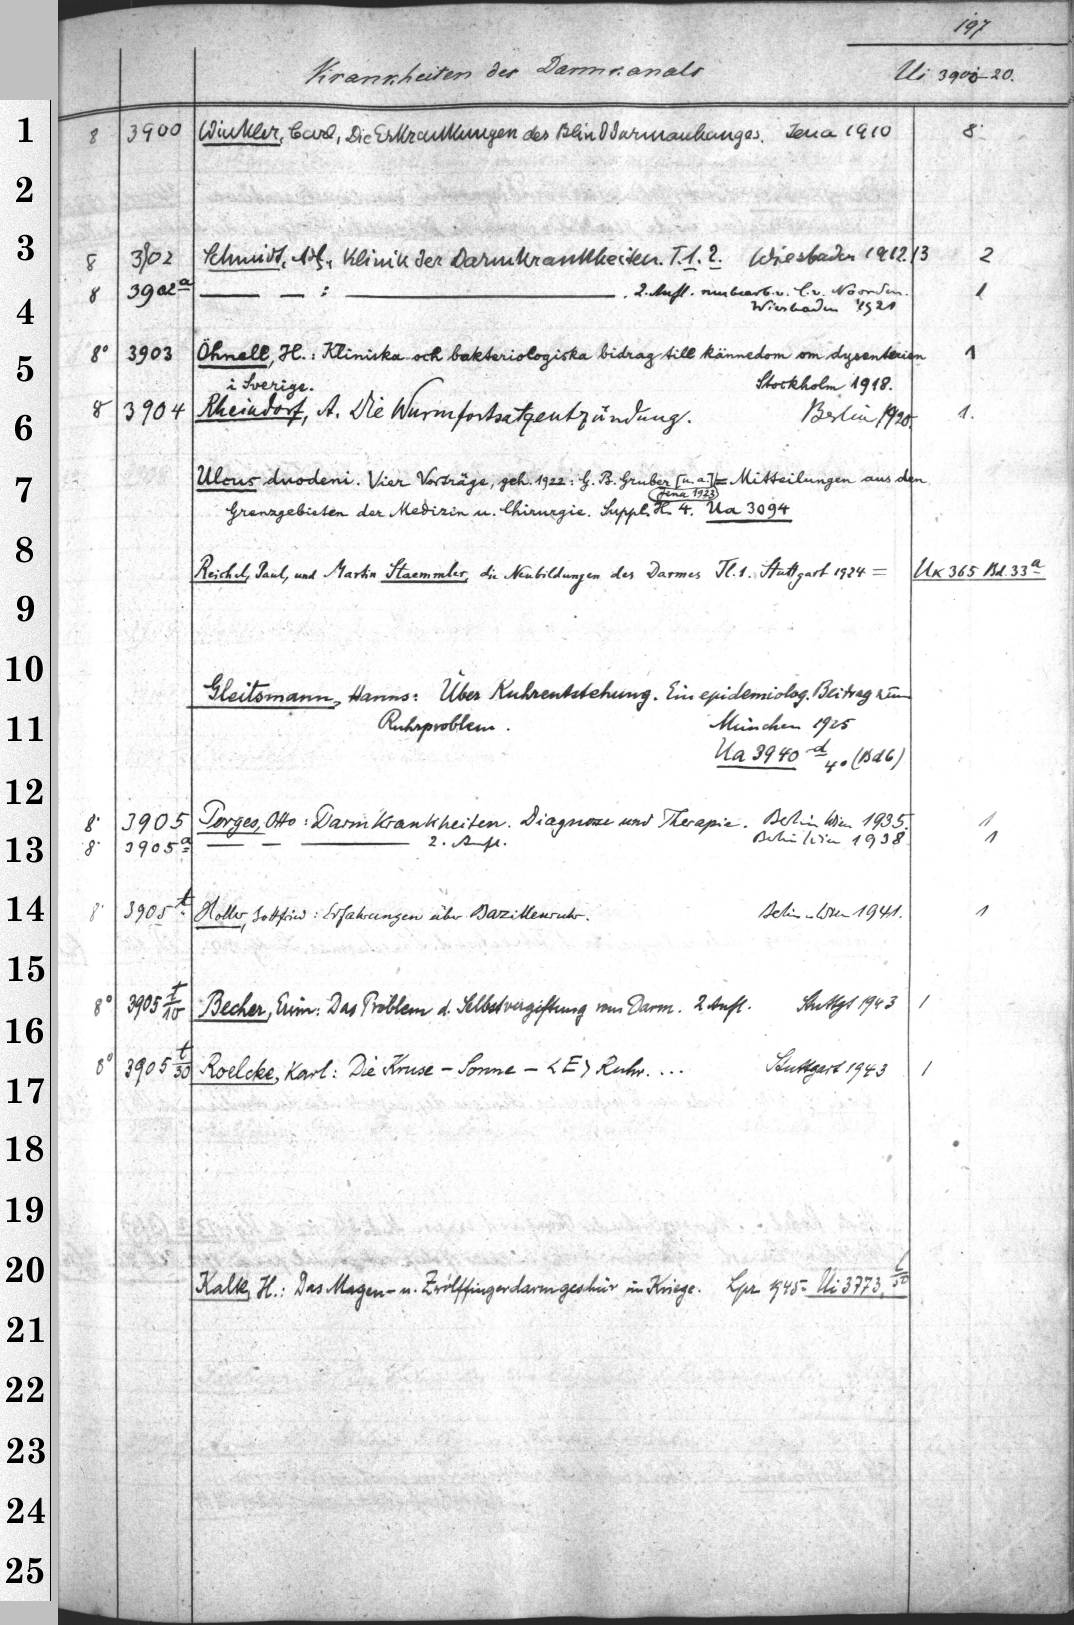 197
Krankheiten des Darmkanals Ui 3900-20.
1 8 3900 Winkler, Carl, Die Erkrankungen des Blinddarmanhanges. Jena 1910 8
2
3 8 3902 Schmidt, Ad., Klinik der Darmkrankheiten. T. 1. 2. Wiesbaden 1912.13 2
8 3902a — — : — . 2. Aufl. neubearb. v. C. v. Noorden. 1
4 Wiesbaden 1921
5 8° 3903 Öhnell, H.: Kliniska och bakteriologiska bidrag till kännedom om dysenterien 1
i Sverige. Stockholm 1918.
6 8 3904 Rheindorf, A. Die Wurmfortsatzentzündung. Berlin 1920. 1.
7 Ulcus duodeni. Vier Vorträge, geh. 1922: G. B. Gruber [u. a.] = Mitteilungen aus den
Jena 1923
Grenzgebieten der Medizin u. Chirurgie. Suppl. H. 4. Ua 3094
8
Reichel, Paul, und Martin Staemmler, die Neubildungen des Darmes Tl. 1. Stuttgart 1924 = Uk 365 Bd. 33a
9
10
Gleitsmann, Hanns: Über Ruhrentstehung. Ein epidemiolog. Beitrag zum
11 Ruhrproblem. München 1925
Ua 3940 d/4° (Bd 6)
12
8° 3905 Porges, Otto: Darmkrankheiten. Diagnose und Therapie. Berlin Wien 1935. 1
13 8° 3905a — — — 2. Aufl. Berlin Wien 1938 1
14 8° 3905t Holler, Gottfried: Erfahrungen über Bazillenruhr. Berlin u. Wien 1941. 1
15
8° 3905 t/10 Becher, Erwin: Das Problem d. Selbstvergiftung vom Darm. 2. Aufl. Stuttgt 1943 1
16
8° 3905 t/30 Roelcke, Karl: Die Kruse – Sonne – <E> Ruhr. ... Stuttgart 1943 1
17
18
19
20
Kalk, H.: Das Magen- u. Zwölffingerdarmgeschwür im Kriege. Lpz 1945 = Ui 3773, t/50
21
22
23
24
25